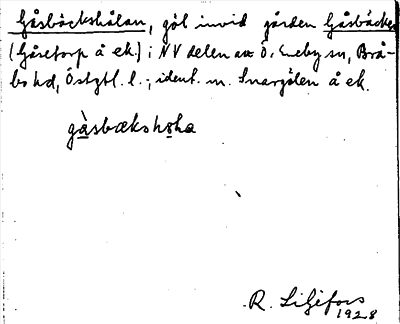 Gåsbäckshålan, göl invid gården Gåsbäcken
(Gåsetorp å ek.) i NV delen av Ö. Eneby sn, Brå-
bo hd, Östgtl. l.; ident. m. Snargölen å ek.
gàsbækshoha
R. Liljefors
1928